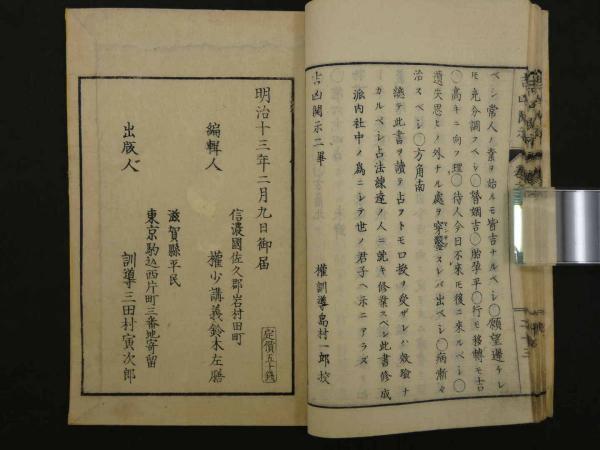 ベシ常人ノ業ヲ始ルモ皆吉ナルベシ〇願望遂ケレ
モ充分調フベシ〇婚姻吉〇胎孕平〇行モ移轉モ吉
〇高キニ向フ理〇待人今日不來モ後ニ來ルベシ〇
遺失思ヒノ外ナル處ヲ穿鑿スレバ出ベシ〇病漸々
治スベシ〇方角南
總テ此書ヲ讀テ占フトモ口授ヲ受ザレハ效驗ナ
カルベシ占法練達ノ人ニ就キ修業スベシ此書修成
派内社中ノ為ニシテ世ノ君子ヘ示ニアラズ
權訓導島村一郎校
吉凶開示二畢
明治十三年二月九日御届
信濃國佐久郡岩村田町
編輯人
權少講義鈴木左膳
定價五十錢
滋賀縣平民
東京駒込西片町三番地寄留
出版人
訓導三田村寅次郎